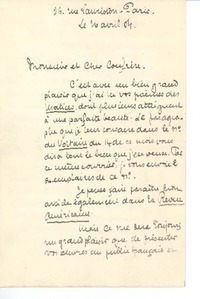 36. rue Lauriston - Paris.
Le 16 avril 84.
Monsieur et Cher Confrère,
C'est avec un bien grand
plaisir que j'ai lu vos poésies
dont plusieurs atteignent
à une parfaite beauté. Le paragra-
phe que je leur consacre dans le No.
du Voltaire du 14 de ce mois vous
dira tout le bien que j'en pense. Par
ce même courrier, je vous envoie 2
exemplaires de ce No.
Je pense faire paraître mon
également dans la Revue
Américaine.
Mais ce me sera toujours
un grand plaisir que de présenter
vos œuvres au public français et